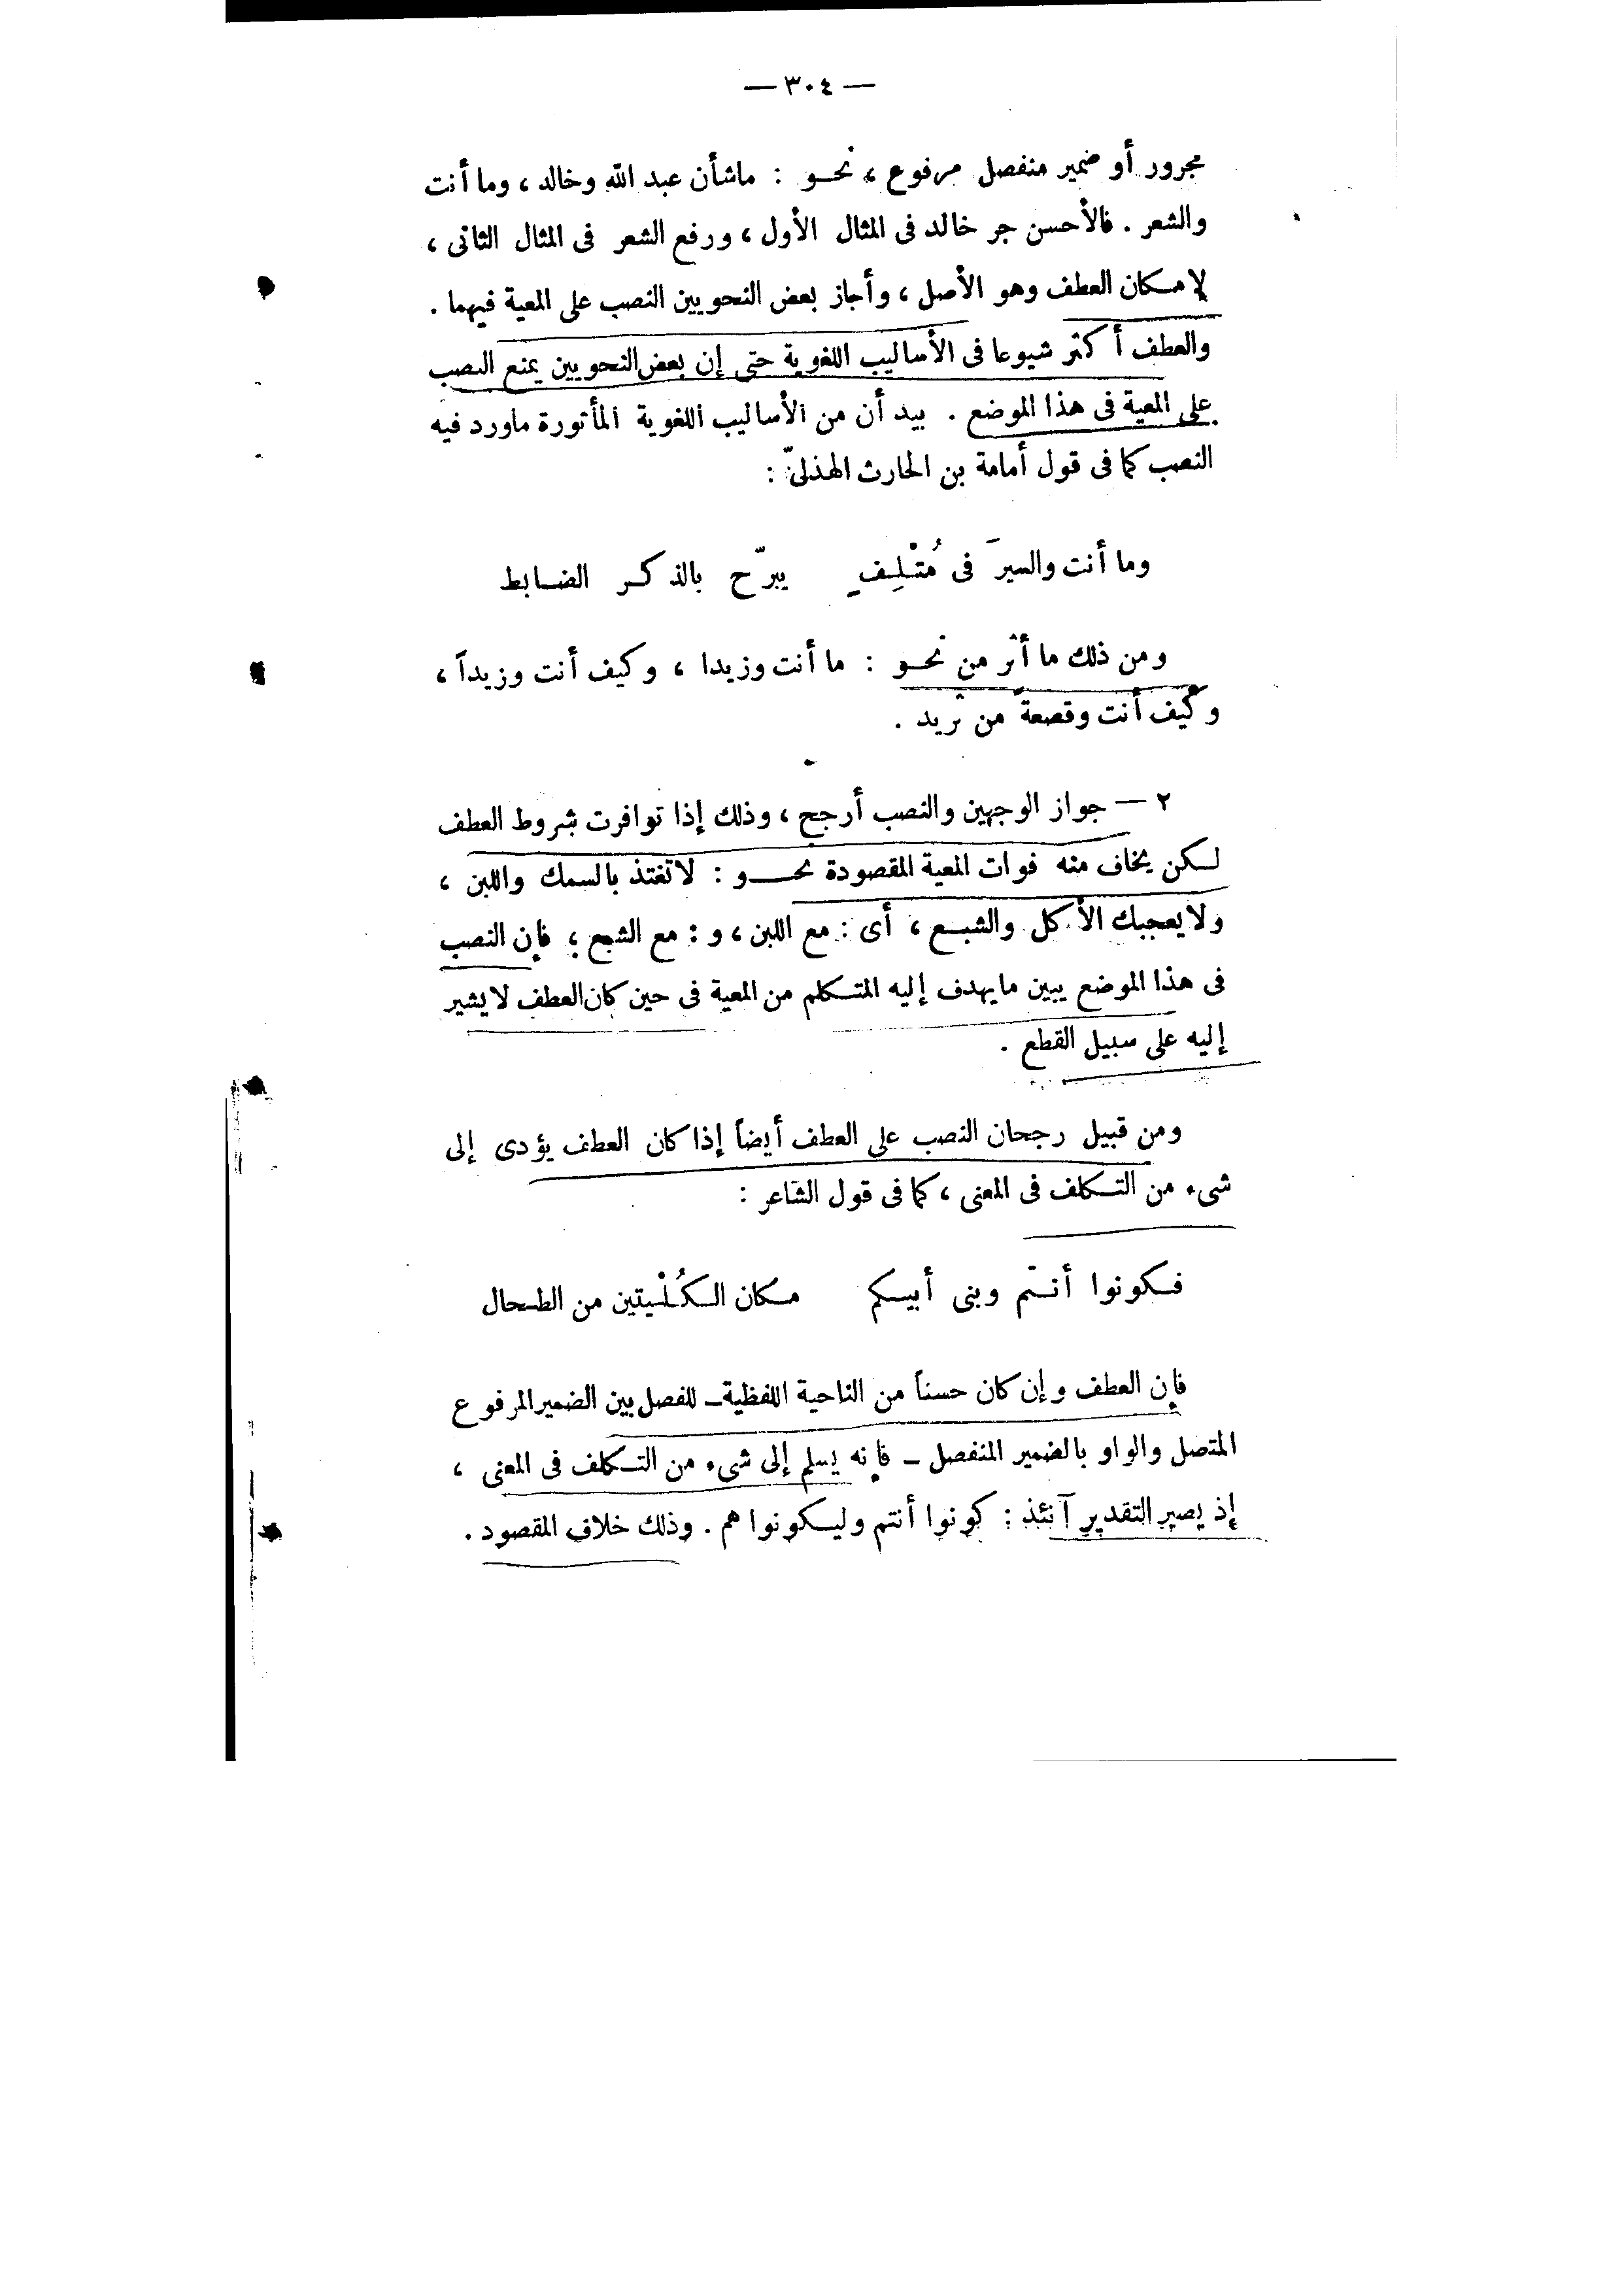 — ٣٠٤ —
مجرور أو ضمير منفصل مرفوع ، نحو : ماشأن عبد الله وخالد ، وما أنت
والشعر . فالأحسن جر خالد فى المثال الأول ، ورفع الشعر فى المثال الثانى ،
لإمكان العطف وهو الأصل ، وأجاز بعض النحويين النصب على المعية فيهما .
والعطف أكثر شيوعا فى الأساليب اللغوية حتى إن بعض النحويين يمنع النصب
على المعية فى هذا الموضع . بيد أن من الأساليب اللغوية المأثورة ماورد فيه
النصب كما فى قول أمامة بن الحارث الهذلىّ :
وما أنت والسيرَ فى مُتْلِفٍ يبرّح بالذكر الضابط
ومن ذلك ما أثر من نحو : ما أنت وزيدا ، وكيف أنت وزيداً ،
وكيف أنت وقصعةً من ثريد .
٢ — جواز الوجهين والنصب أرجح ، وذلك إذا توافرت شروط العطف
لكن يخاف منه فوات المعية المقصودة نحو : لاتغتذ بالسمك واللبن ،
ولايعجبك الأكل والشبع ، أى : مع اللبن ، و : مع الشبع ؛ فإن النصب
فى هذا الموضع يبين مايهدف إليه المتكلم من المعية فى حين كان العطف لايشير
إليه على سبيل القطع .
ومن قبيل رجحان النصب على العطف أيضاً إذا كان العطف يؤدى إلى
شىء من التكلف فى المعنى ، كما فى قول الشاعر :
فكونوا أنتم وبنى أبيكم مكان الكُلْيتين من الطحال
فإن العطف وإن كان حسناً من الناحية اللفظية – للفصل بين الضمير المرفوع
المتصل والواو بالضمير المنفصل – فإنه يسلم إلى شىء من التكلف فى المعنى ،
إذ يصير التقدير آنئذ : كونوا أنتم وليكونوا هم . وذلك خلاف المقصود .